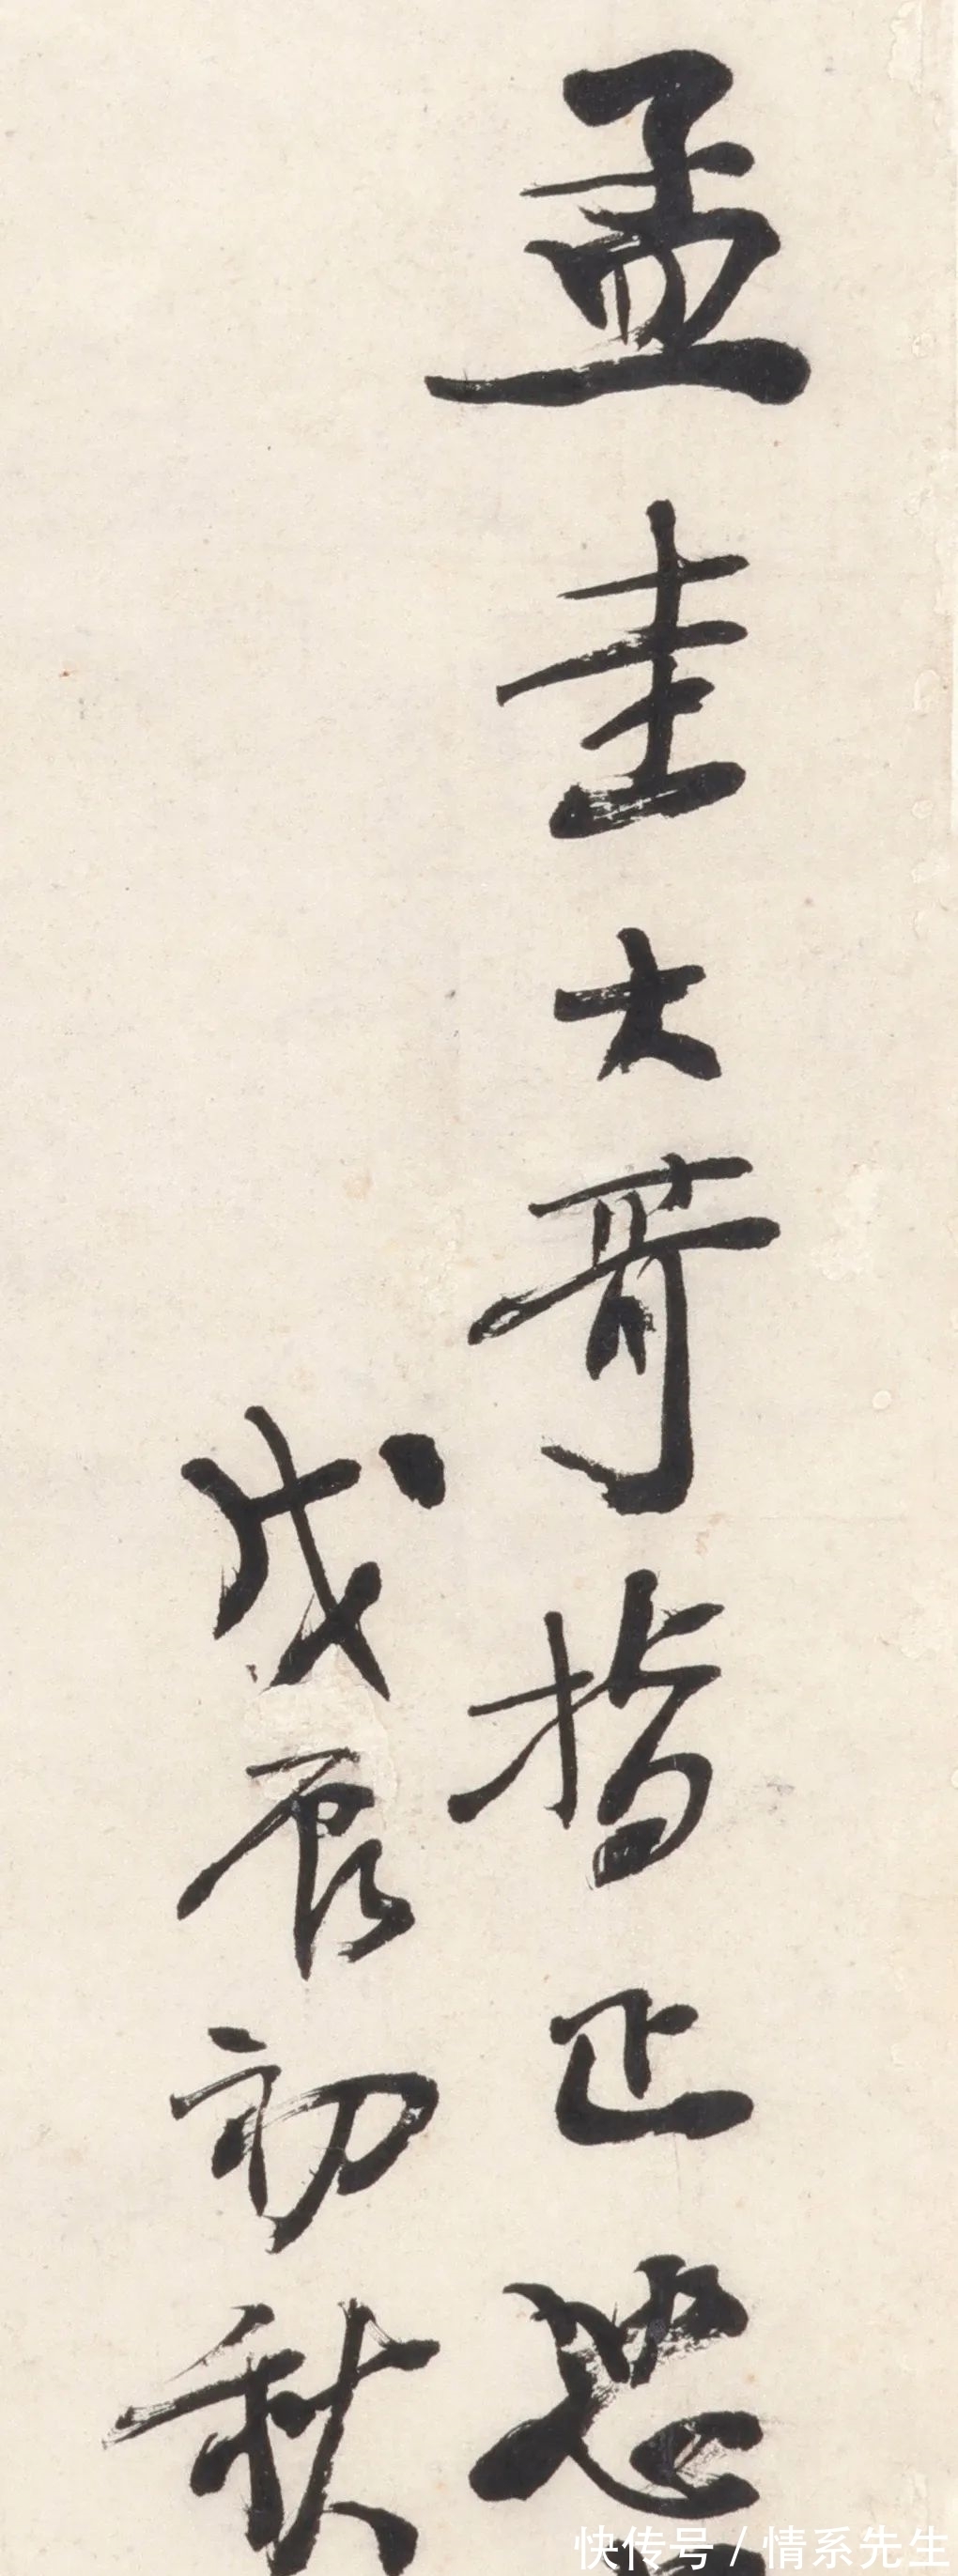 孟圭大哥指正
戊辰初秋
快传号/情系先生